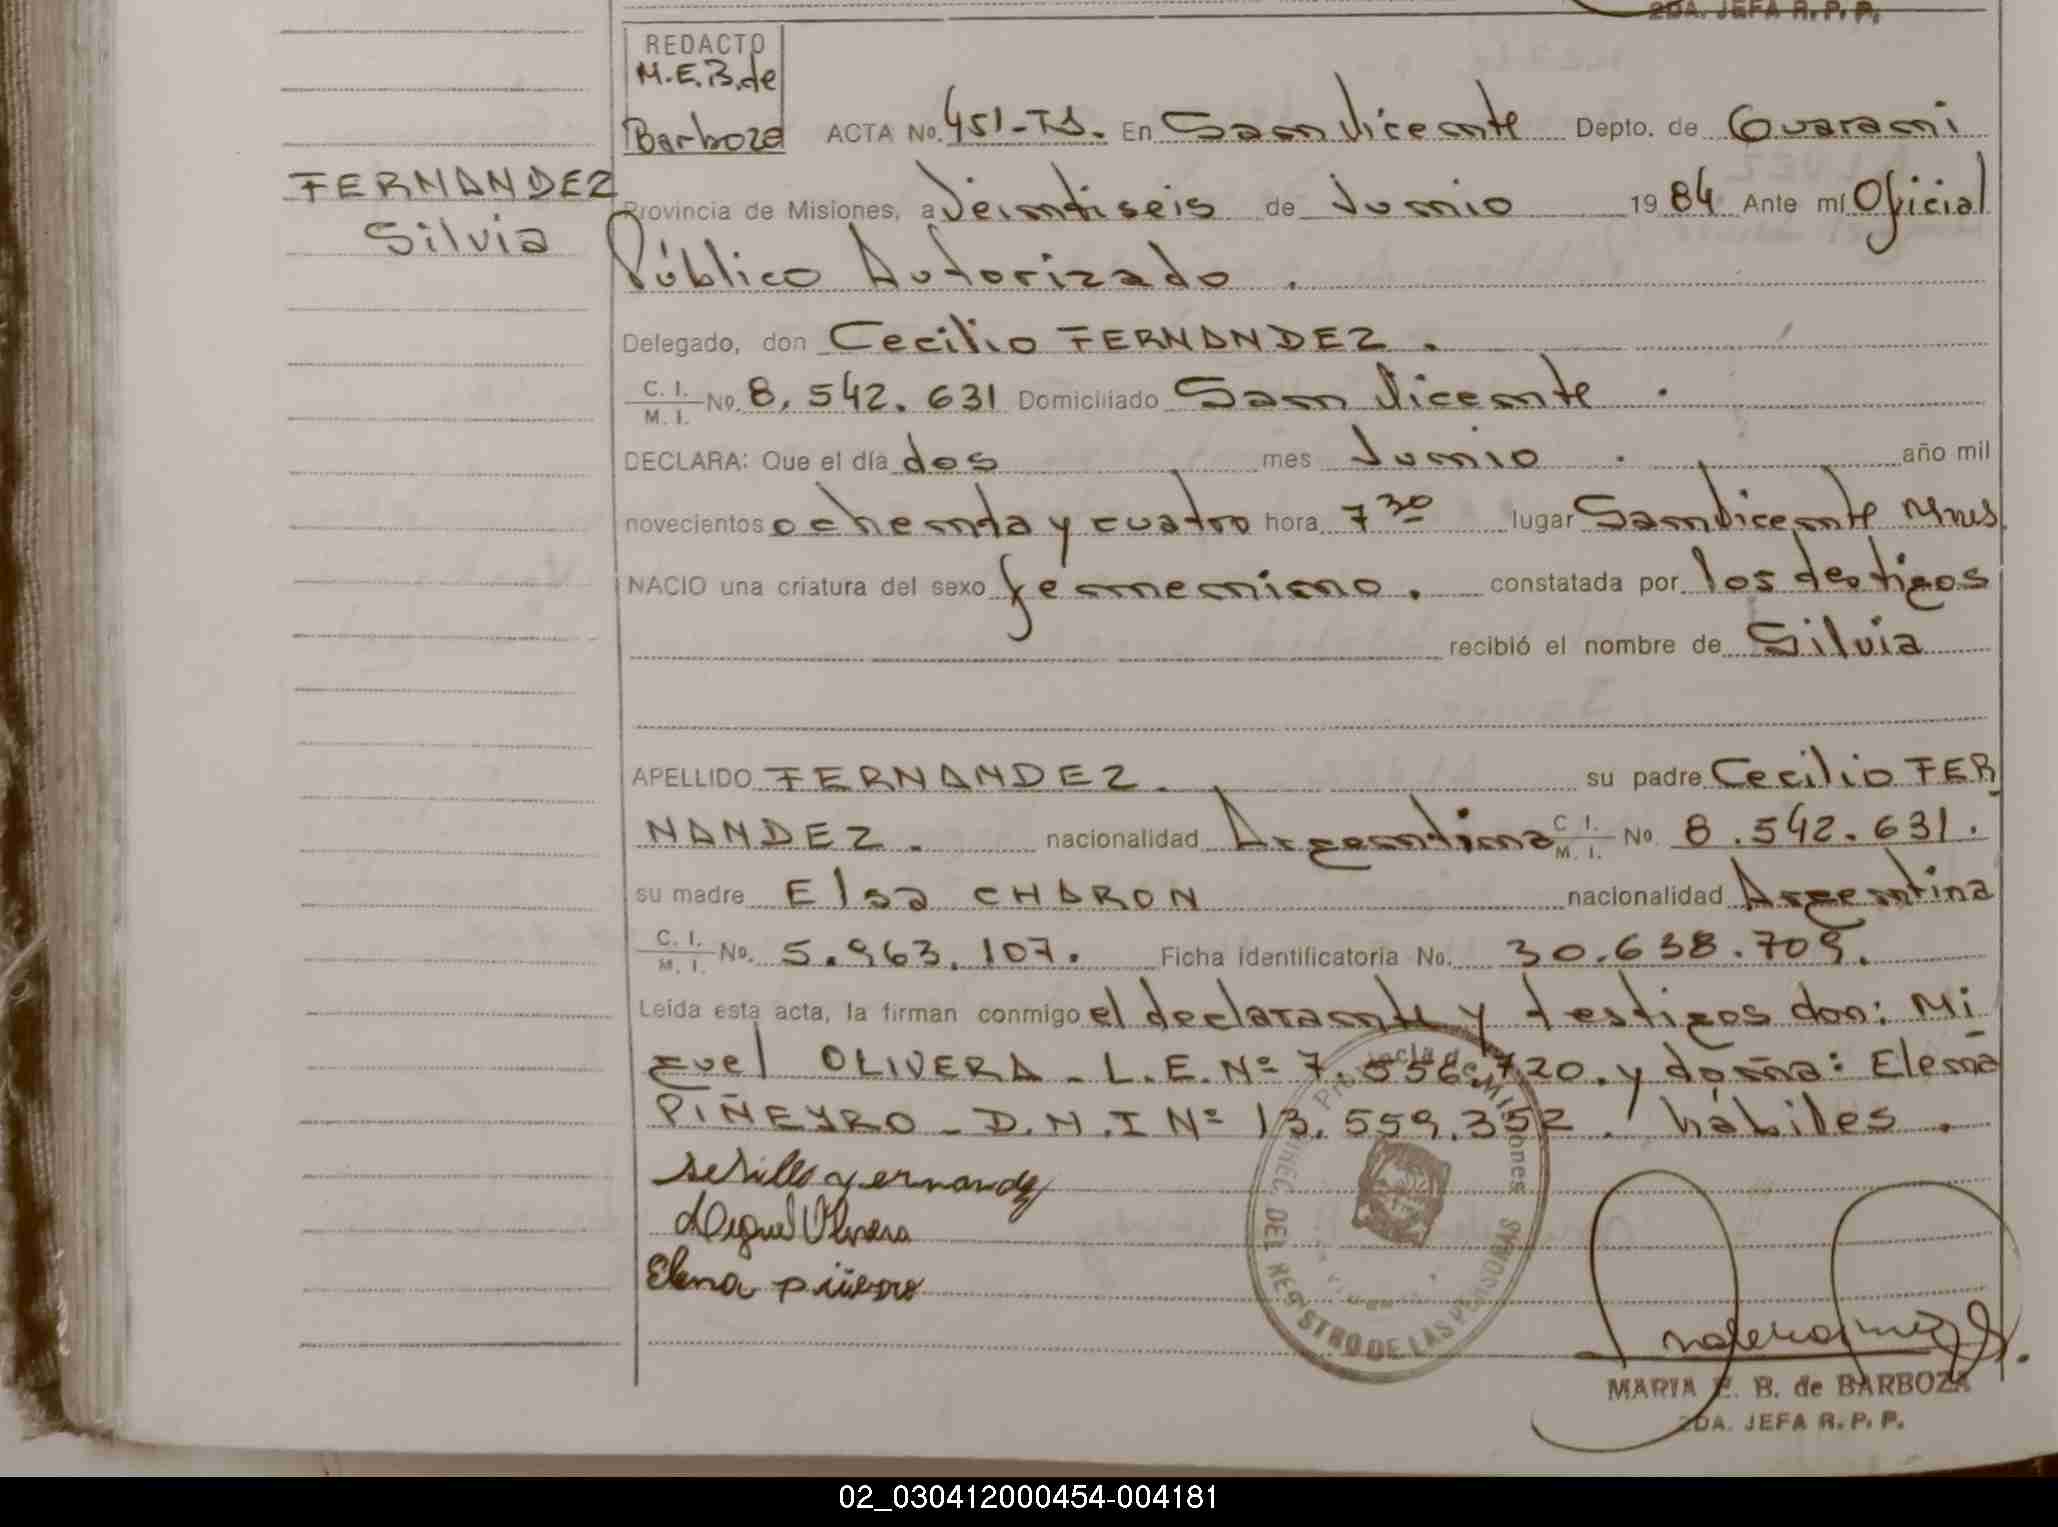 2DA. JEFA R. P. P.
REDACTO
M.E.B. de
Barboza
ACTA No. 451-TS. En San Vicente Depto. de Guarani
FERNANDEZ
Silvia
Provincia de Misiones, a Veintiseis de Junio 1984 Ante mí Oficial
Público Autorizado.
Delegado, don Cecilio FERNANDEZ.
C. I.
M. I. No. 8.542.631 Domiciliado San Vicente.
DECLARA: Que el día dos mes Junio. año mil
novecientos ochenta y cuatro hora 7 30 lugar San Vicente Mnes.
NACIO una criatura del sexo femenino. constatada por los testigos
recibió el nombre de Silvia
APELLIDO FERNANDEZ. su padre Cecilio FER
NANDEZ. nacionalidad Argentina C. I. M. I. No. 8.542.631.
su madre Elsa CHARON nacionalidad Argentina
C. I.
M. I. No. 5.963.107. Ficha Identificatoria No. 30.638.709.
Leída esta acta, la firman conmigo el declarante y testigos don: Mi
guel OLIVERA - L.E. Nº 7.556.720. y doña: Elena
PIÑEYRO - D.N.I Nº 13.559.352. hábiles.
Miguel Olivera
Elena
Provincia de Misiones
DIREC. DEL REGISTRO DE LAS PERSONAS
MARIA E. B. de BARBOZA
2DA. JEFA R. P. P.
02_030412000454-004181